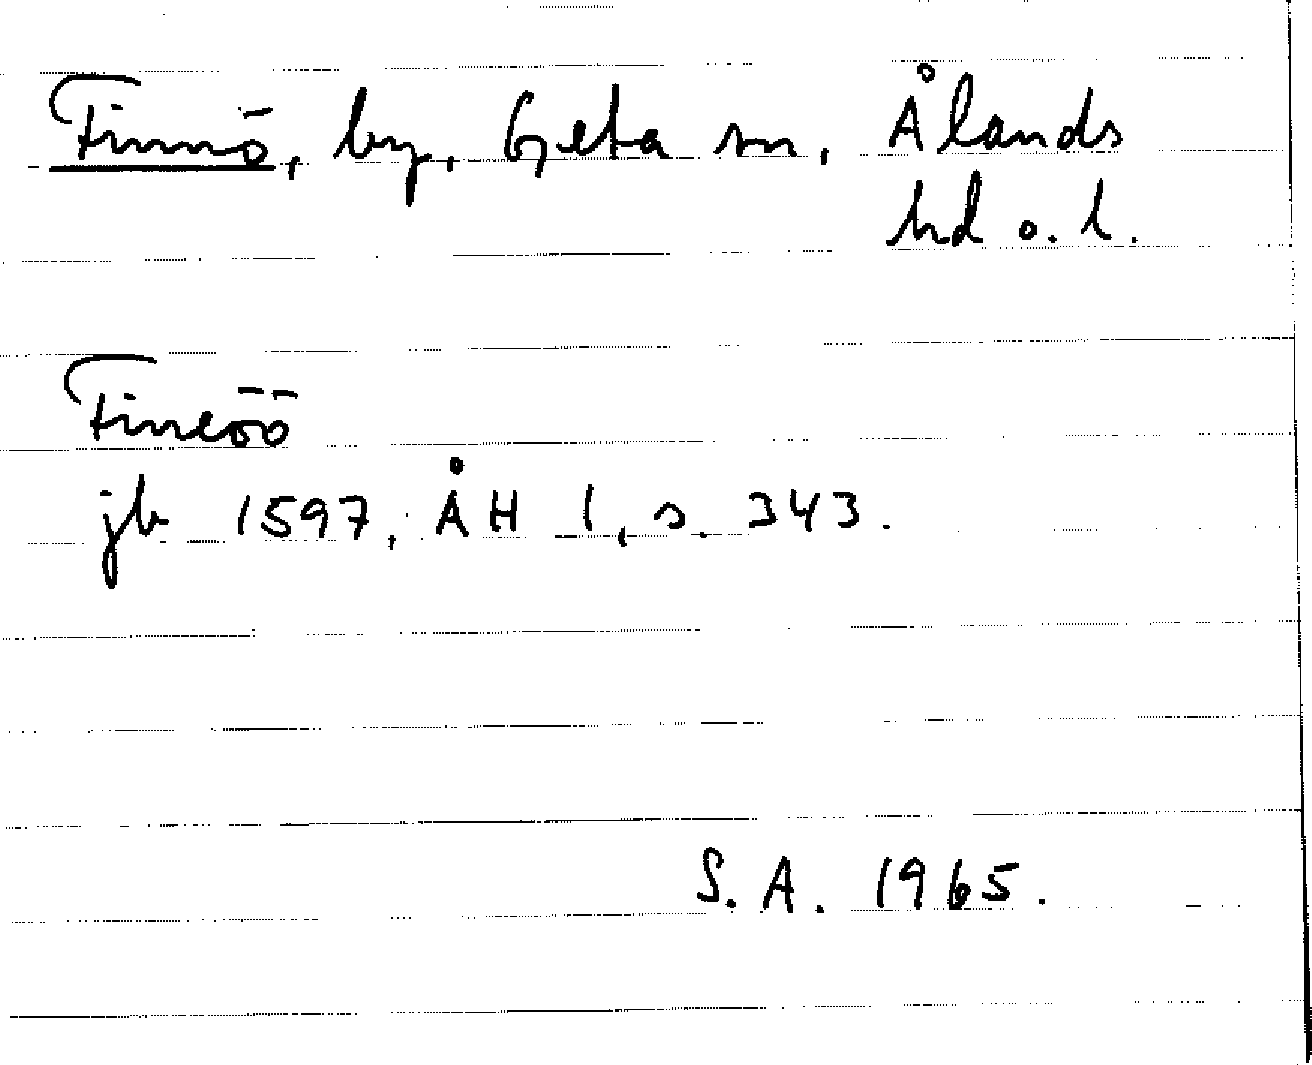 Finnö, by, Geta sn, Ålands
hd o. l.
Fineöö
jb 1597, ÅH 1, s. 343.
S.A. 1965.